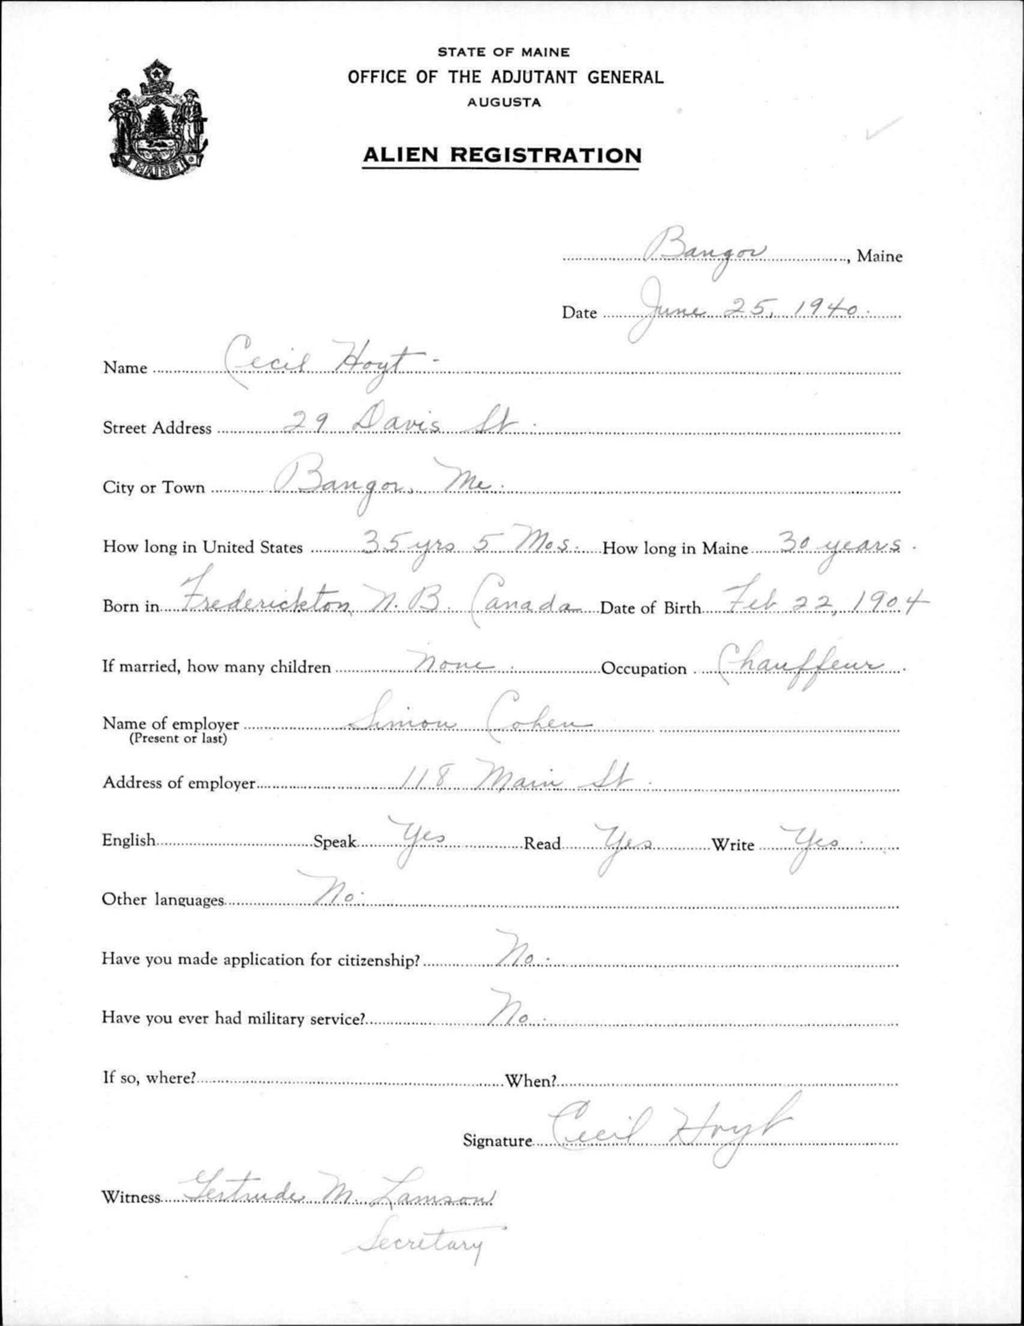 STATE OF MAINE
OFFICE OF THE ADJUTANT GENERAL
AUGUSTA
ALIEN REGISTRATION
MAINE
Bangor, Maine
Date June 25, 1940.
Name Cecil Hoyt -
Street Address 29 Davis St.
City or Town Bangor, Me.
How long in United States 35 yrs 5 Mos. How long in Maine 30 years.
Born in Frederickton, N.B. Canada Date of Birth Feb 22, 1904
If married, how many children None. Occupation Chauffeur.
Name of employer Simon Cohen
(Present or last)
Address of employer 118 Main St.
English Speak Yes Read Yes Write Yes.
Other languages No.
Have you made application for citizenship? No.
Have you ever had military service? No.
If so, where? When?
Signature Cecil Hoyt
Witness Gertrude M. Lamson
Secretary